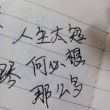 人生太短
何必想
那么多